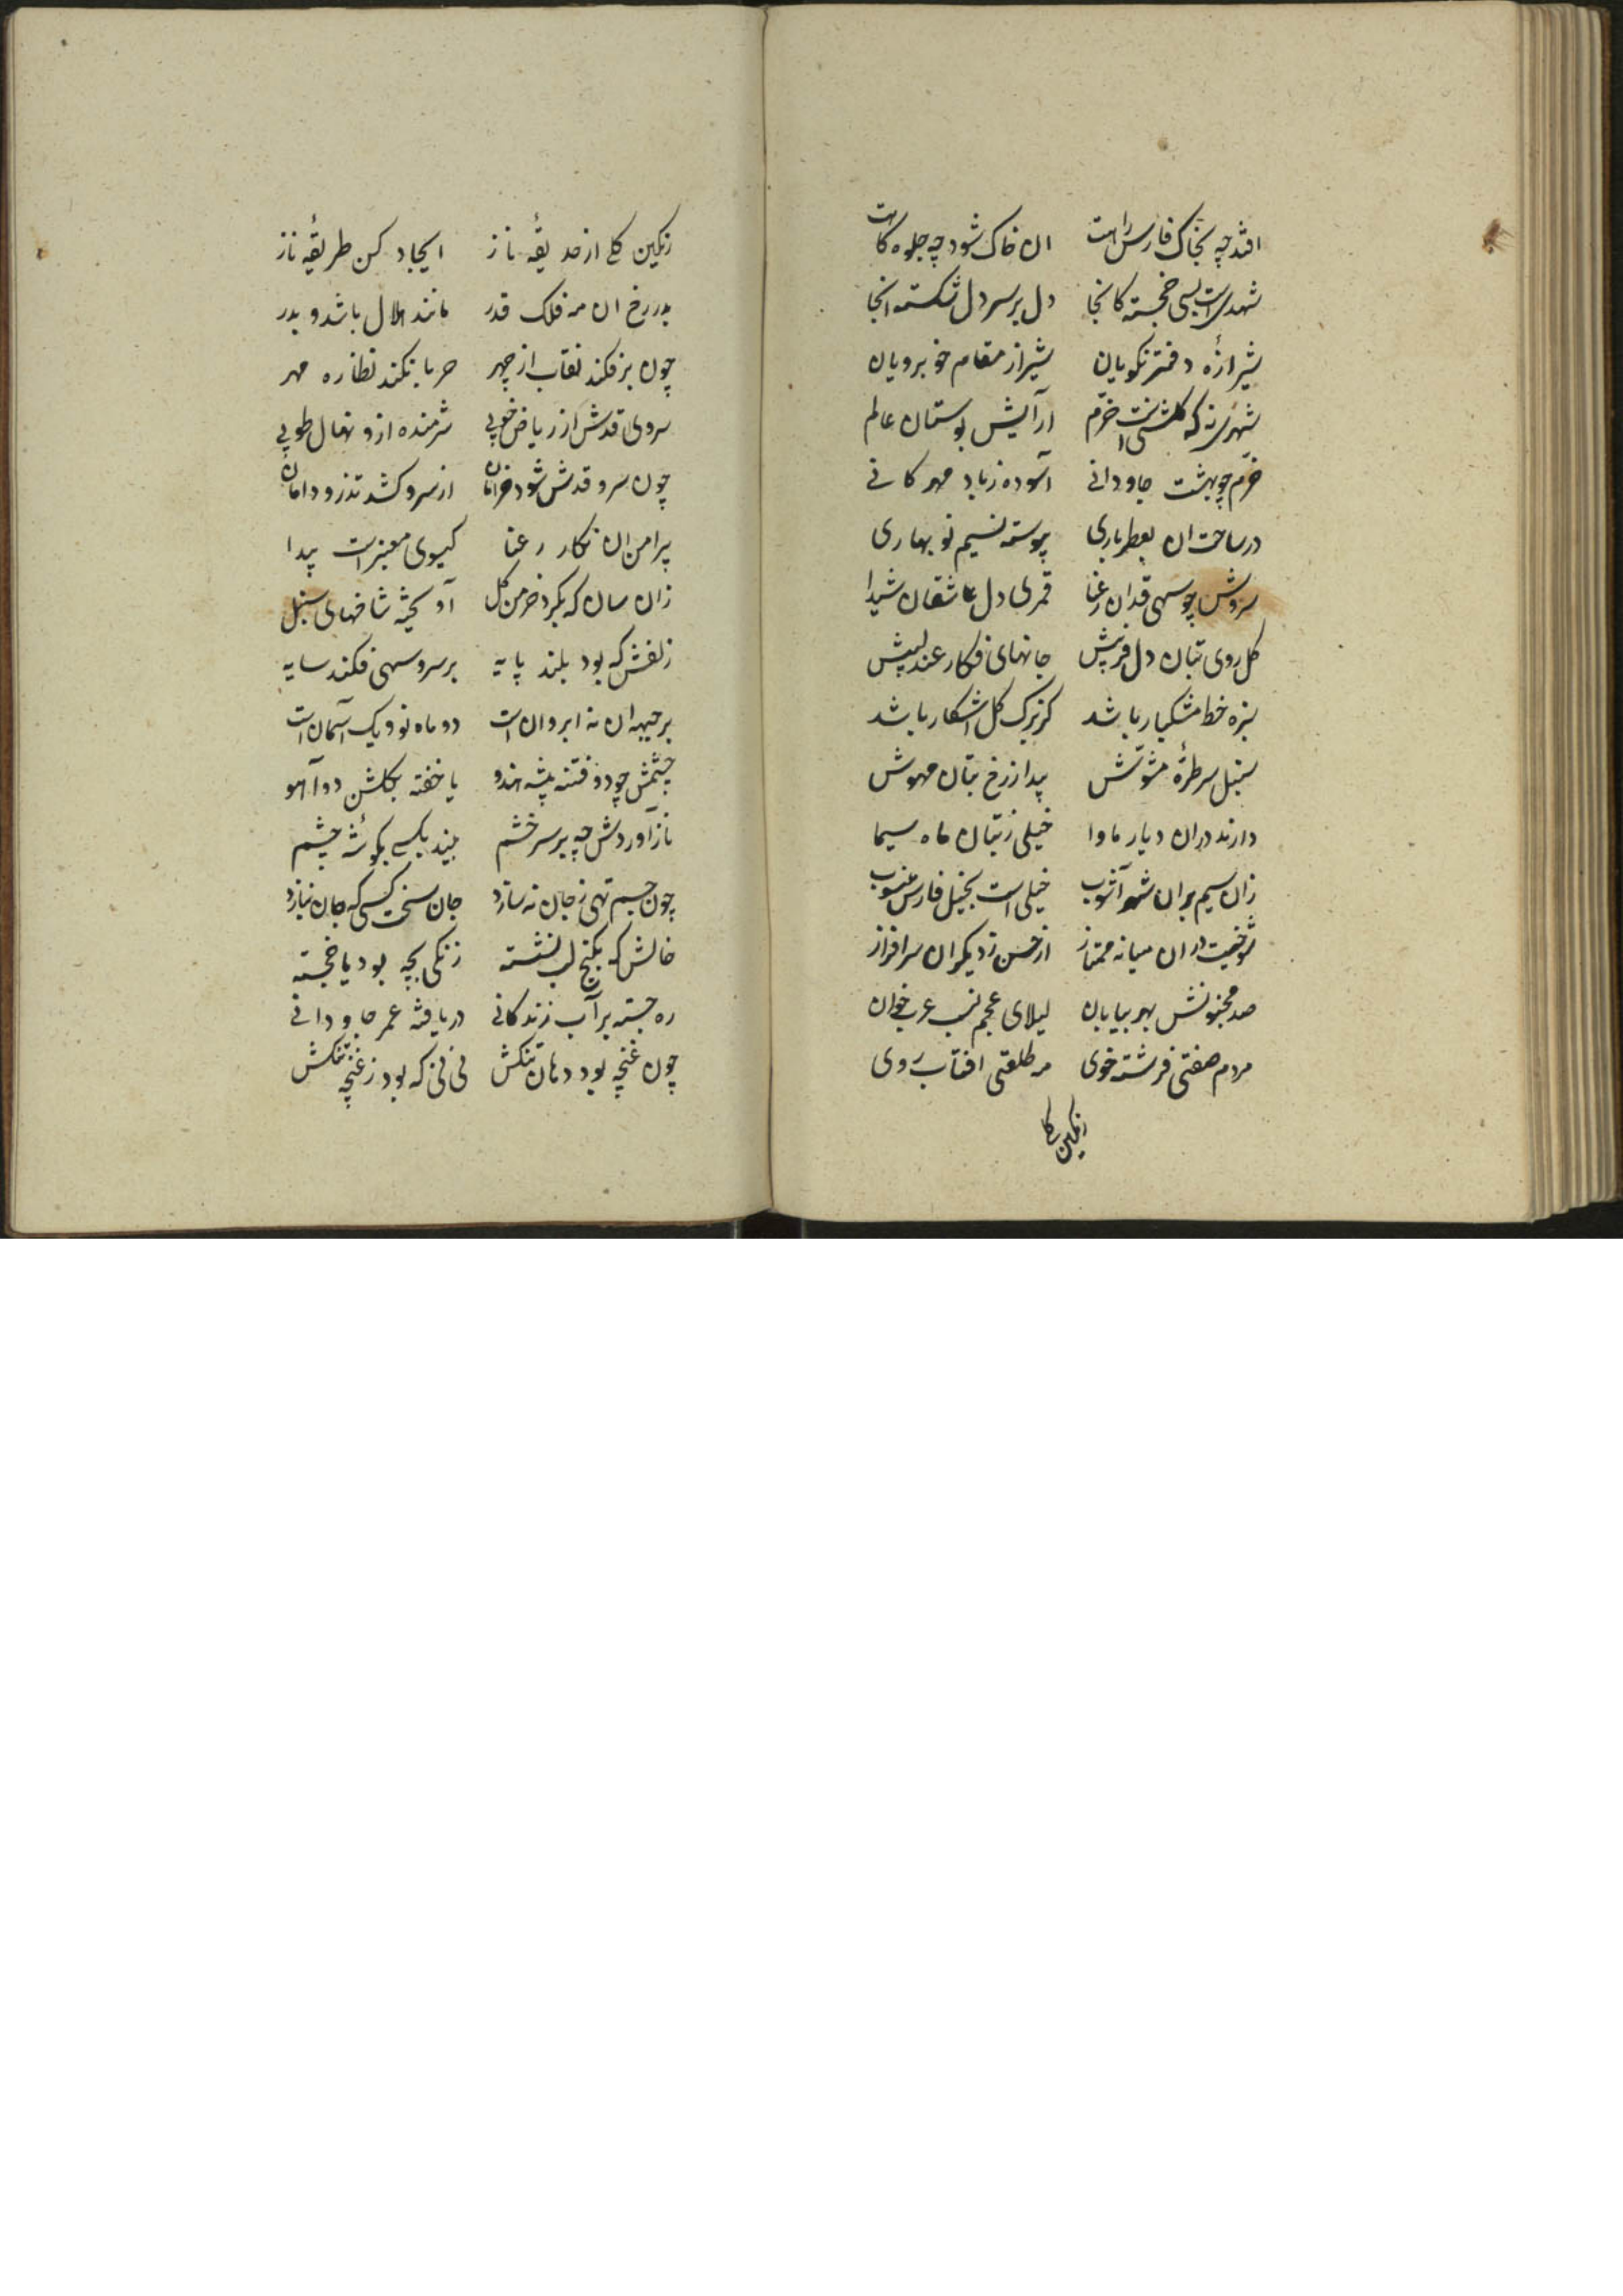 افتد چه بخاک فارس راهت ان خاک شود چه جلوه کاهت
شهریست بسی خجسته کانجا دل بر سر دل شکسته انجا
شیرازهٔ دفتر نکویان شیراز مقام خوبرویان
شهری نه که گلشنیست خرّم ارآیش بوستان عالم
خرّم چو بهشت جاودانی آسوده زباد مهرکانی
در ساحت ان بعطرباری پیوسته نسیم نوبهاری
سروش چو سهی قدان رعنا قمری دل عاشقان شیدا
کل روی بتان دلفریبش جانهای فکار عندلیبش
سبزه خط مشکبار باشد کز برک کل اشکار باشد
سنبل سر طرهٔ مشوّش پیدا ز رخ بتان مهوش
دارند دران دیار ماوا خیلی ز بتان ماه سیما
زان سیم بران شهر آشوب خیلی است بخیل فارس منسوب
شوخیست دران میانه ممتاز از حسن ز دیکران سرافراز
صد مجنونش بهر بیابان لیلای عجم نسب عرب خوان
مردم صفتی فرشته خوی مه طلعتی افتاب روی
رنکین کلی
رنکین کلی از حدیقهٔ ناز ایجاد کن طریقهٔ ناز
بدر رخ ان مه فلک قدر مانند هلال باشد و بدر
چون برفکند نقاب از چهر حربا نکند نظاره مهر
سروی قدش از ریاض خوبی شرمنده ازو نهال طوبی
چون سرو قدش شود خرامان از سرو کشد تذرو دامان
پیرامن ان نکار رعنا کیسوی معنبر است پیدا
زان سان که بکرد خرمن کل آویخته شاخهای سنبل
زلفش که بود بلند پایه بر سرو سهی فکند سایه
بر جبهه ان مه ابروان است دو ماه نو و یک آسمان است
چشمش چو دو فتنه پیشه هندو یا خفته بکلشن دو آهو
ناز آوردش چه بر سر خشم بیند بکسی بکوشهٔ چشم
چون جسم تهی ز جان نه سازد جان سخت کسی که جان نبازد
خالش که بکنج لب نشسته زنکی بچه بود یا خجسته
ره جسته بر آب زندکانی دریافته عمر جاودانی
چون غنچه بود دهان تنکش نی نی که بود ز غنچه ننکش